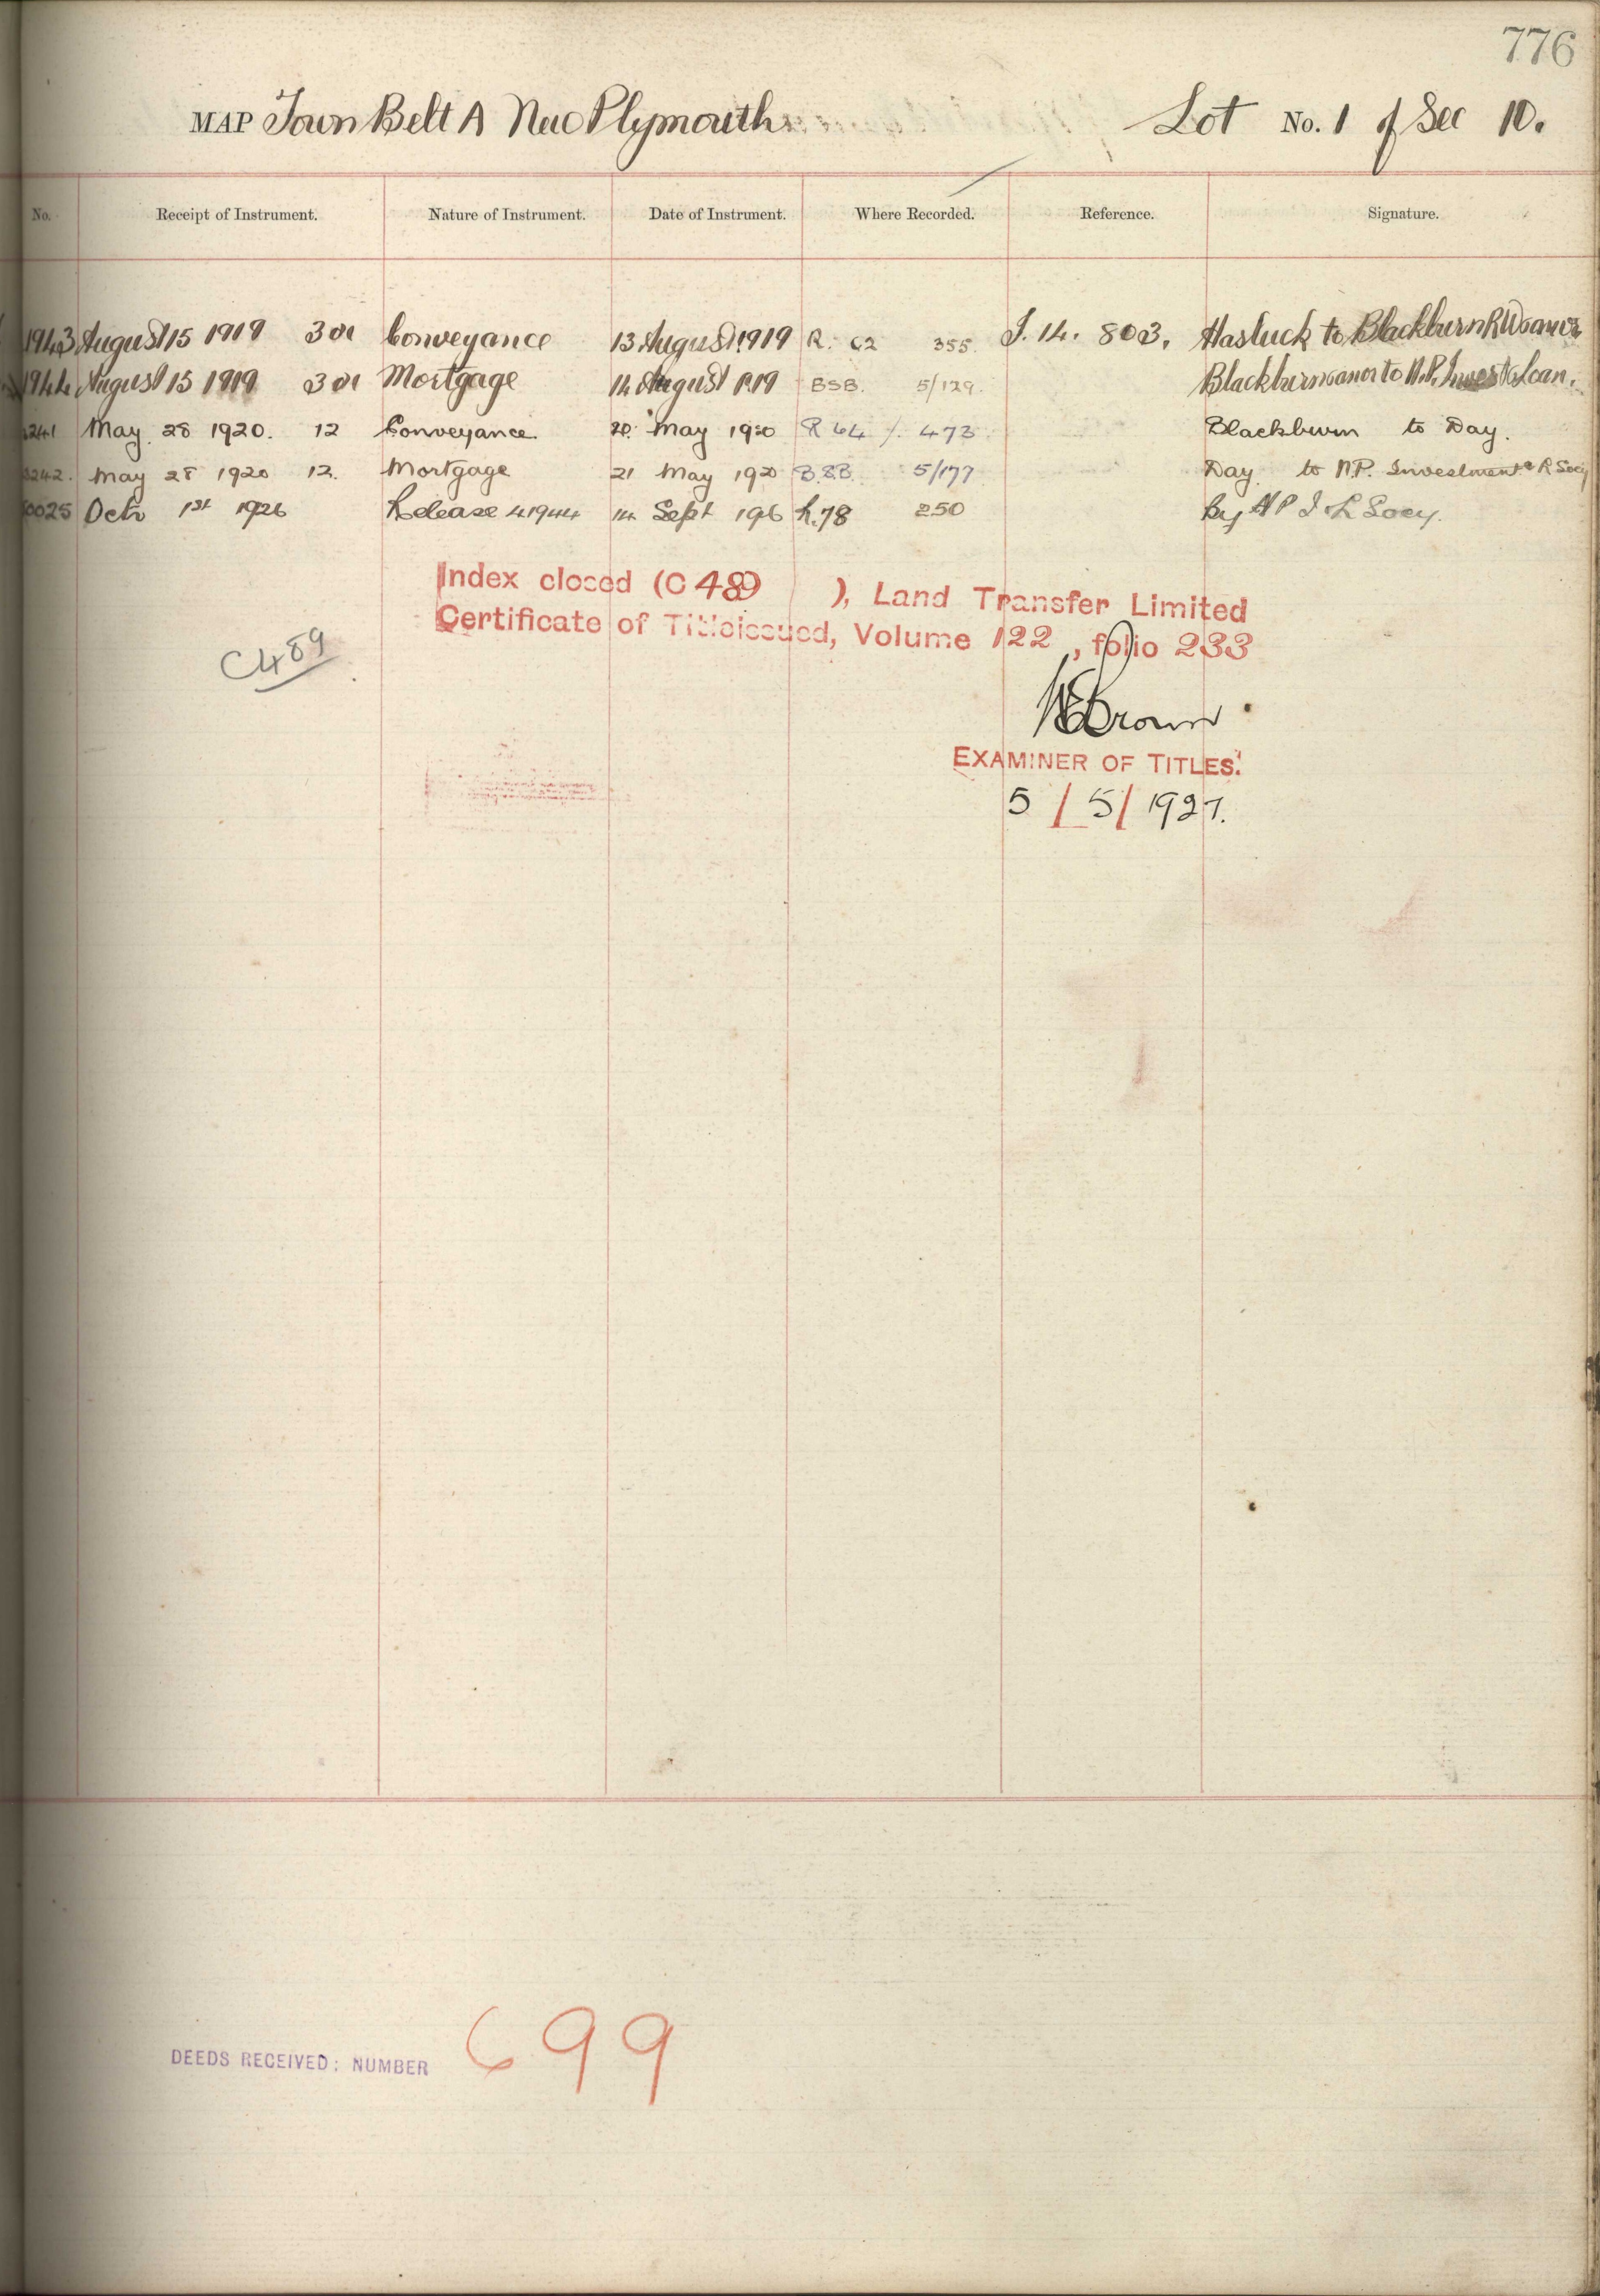 776
MAP Town Belt A New Plymouth Lot No. 1 of Sec 10.
No. Receipt of Instrument. Nature of Instrument. Date of Instrument. Where Recorded. Reference. Signature.
1943 August 15 1919 3 Conveyance 13 August 1919 R. 62 355 I. 14. 803. Hasluck to Blackburn
1944 August 15 1919 3 Mortgage 14 August 1919 BSB. 5/129. Blackburn & anor to N.P. Invest & Loan.
241 May 28 1920. 12 Conveyance 20 May 1920 R 64 473 Blackburn to Day.
242. May 28 1920 12. Mortgage 21 May 1920 B.S.B. 5/177 Day to N.P. Investment & R Socy
0025 Octr 1st 1926 Release 41944 14 Sept 1926 R.78 250 by N P I & L Socy.
Index closed (C 489 ), Land Transfer Limited
Certificate of Title issued, Volume 122, folio 233
C489
Brown
EXAMINER OF TITLES.
5/5/1927.
DEEDS RECEIVED: NUMBER 699